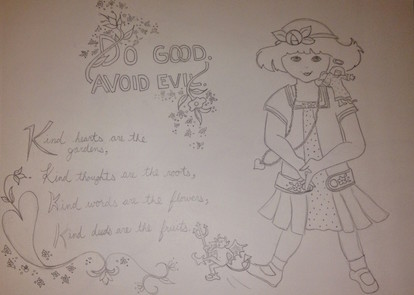 DO GOOD.
AVOID EVIL
Kind hearts are the
gardens,
Kind thoughts are the roots,
Kind words are the flowers,
Kind deeds are the fruits